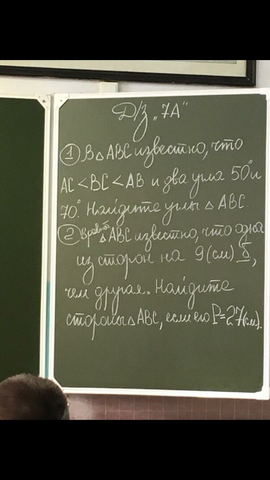 Д/з „7А"
① В △ АВС известно, что
АС < ВС < АВ и два угла 50° и
70°. Найдите углы △ АВС
② В равнб. △ АВС известно, что одна
из сторон на 9 (см) Б,
чем другая. Найдите
стороны △ АВС, если его Р = 27 (см).